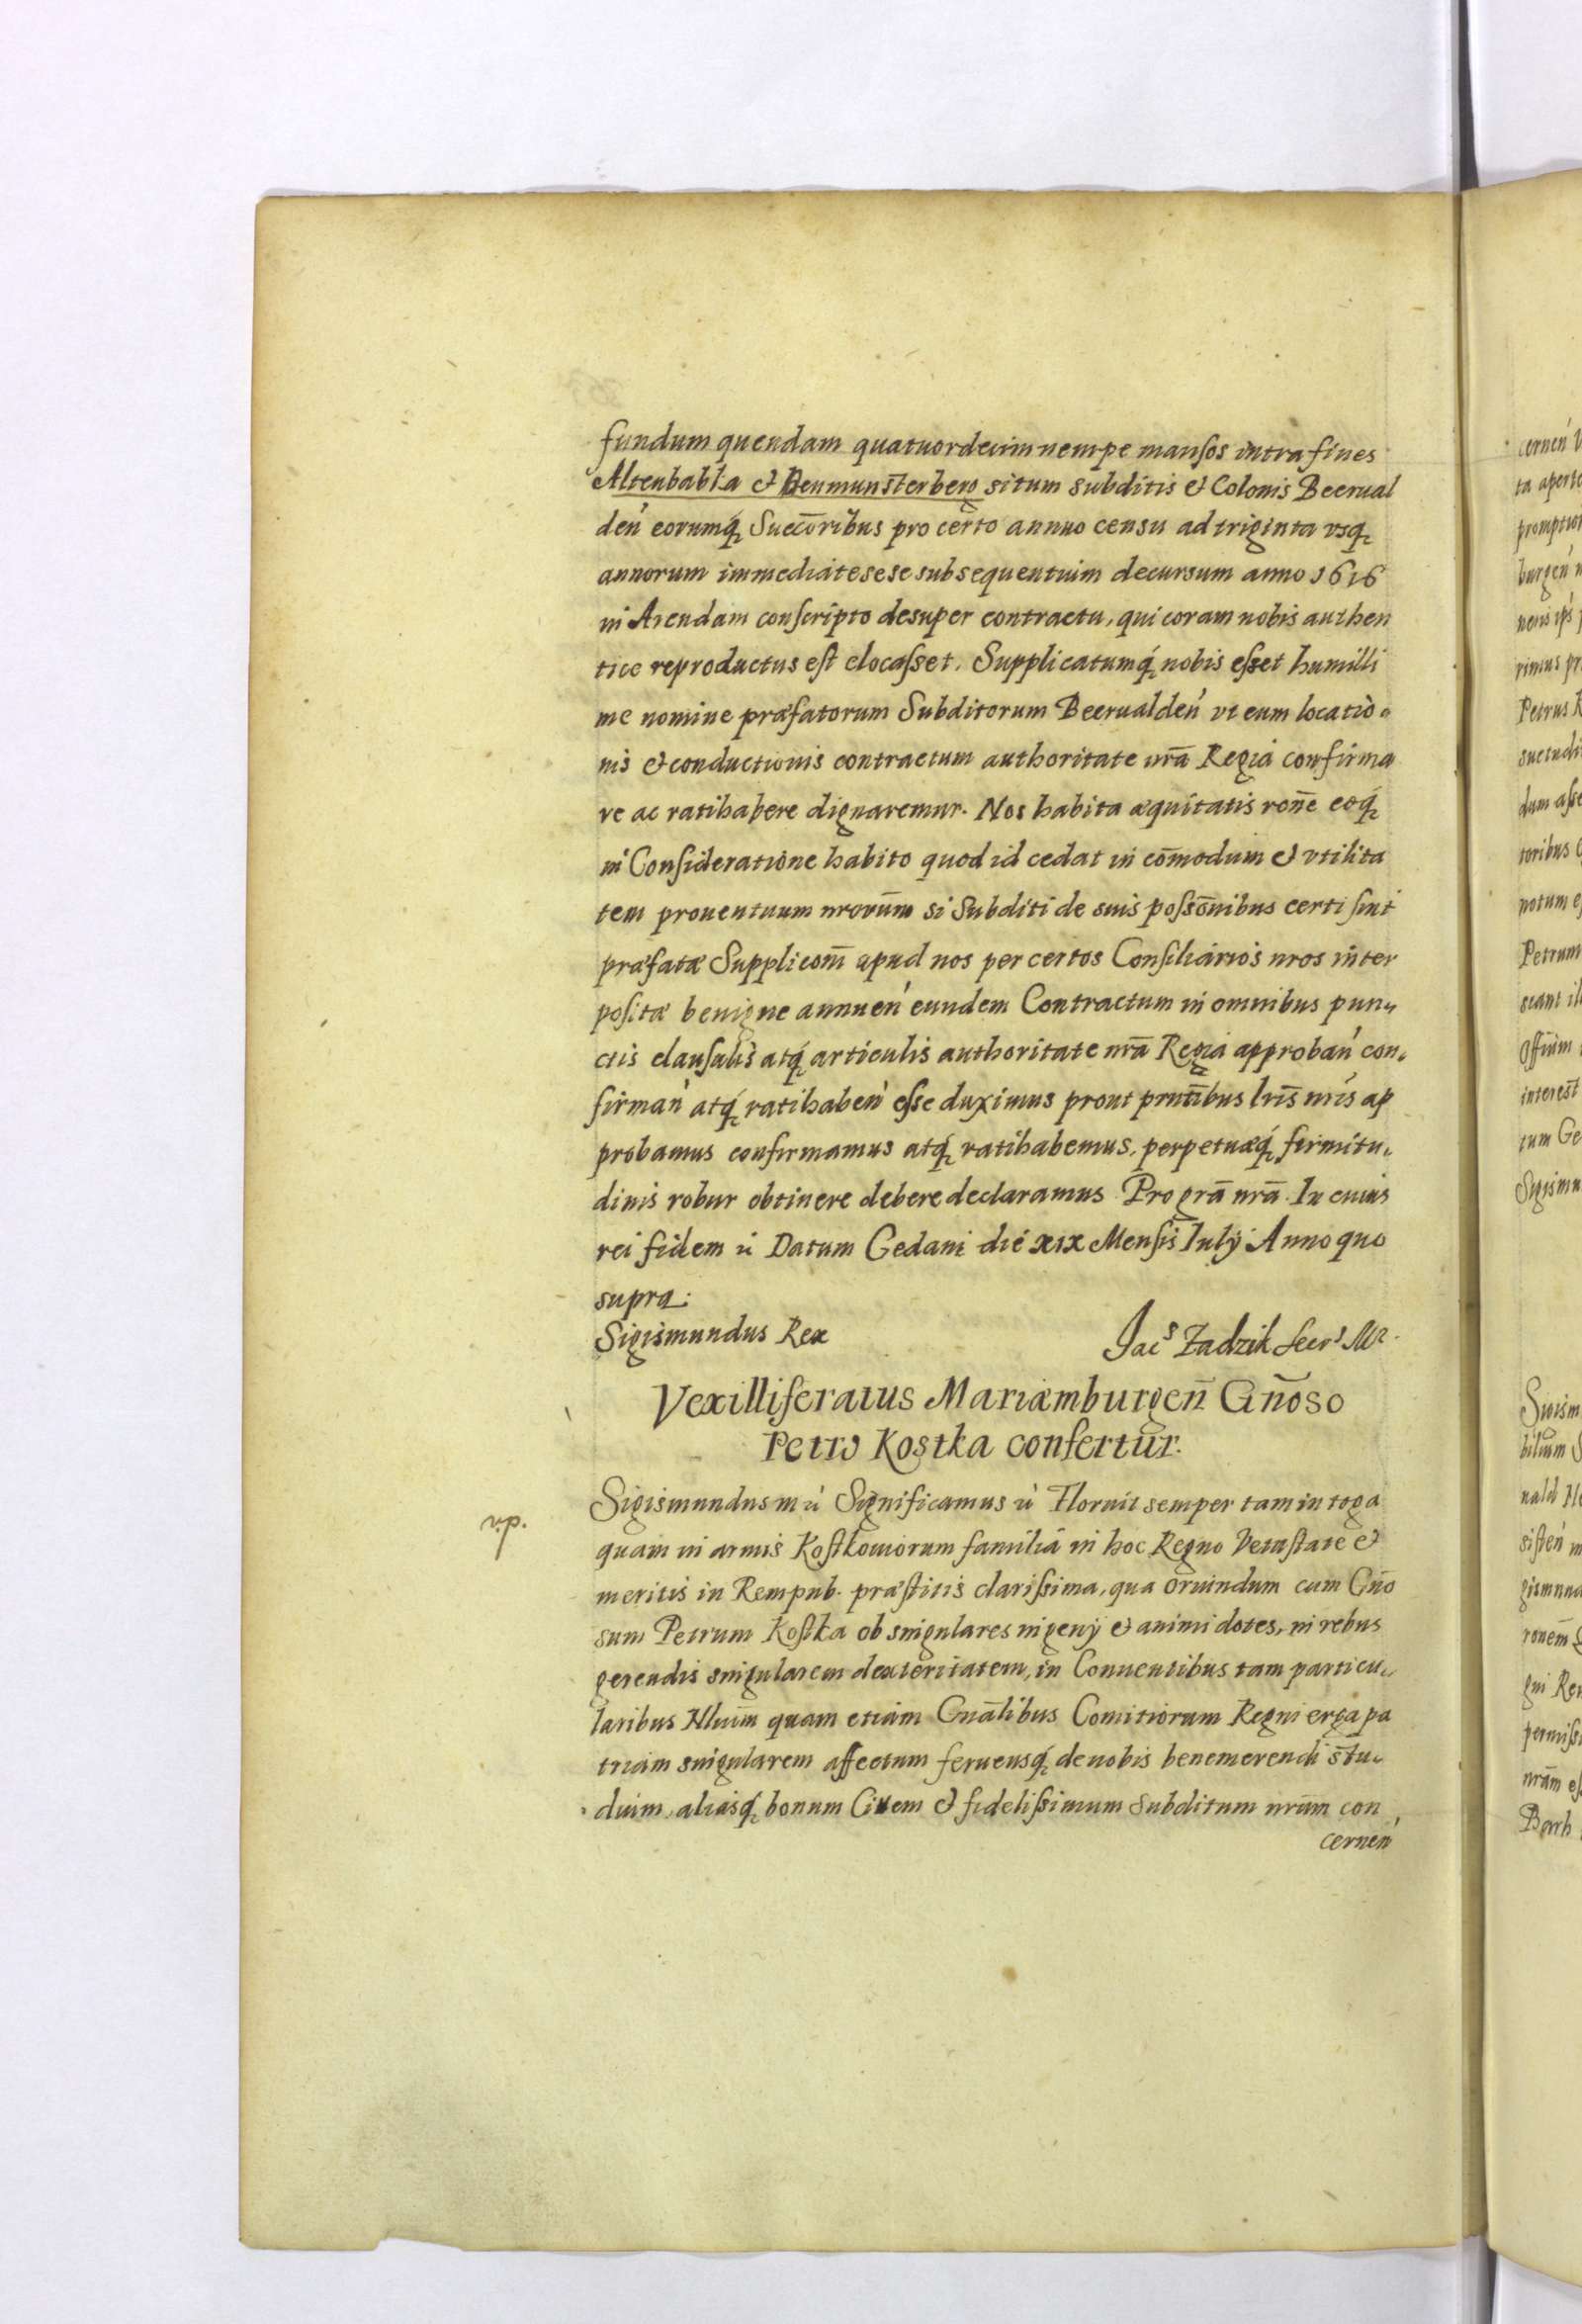 fundum quendam quatuordecim nempe mansos intra fines
Altenbabka & Beumunsterberg situm subditis & Colonis Beerual
deń eorumq́ Succōribus pro certo annuo censu ad triginta vsq́
annorum immediate sese subsequentium decursum anno 1616
in Arendam conscripto desuper contractu, qui coram nobis authen
tice reproductus est elocasset. Supplicatumq́ nobis esset humilli
me nomine præfatorum Subditorum Beerualdeń vt eum locatio
nis & conductionis contractum authoritate nrā Regia confirma
re ac ratihabere dignaremur. Nos habita æquitatis ronē eoq́
in Consideratione habito quod id cedat in cōmodum & vtilita
tem prouentuum nrorūm si Subditi de suis possōnibus certi sint
præfatæ Supplicom̄ apud nos per certos Consiliarios nros inter
positæ benigne annueń eundem Contractum in omnibus pun„
ctis clausulis atq́ articulis authoritate nrā Regia approbań con„
firmań atq́ ratihabeń esse duximus prout prntībus lrīs nrīs ap
probamus confirmamus atq́ ratihabemus, perpetuæq́ firmitu„
dinis robur obtinere debere declaramus Pro grā nrā. In cuius
rei fidem ú Datum Gedani die xıx Mensis Iulÿ Anno quo
supra.
Sigismundus Rex Jacs Zadzik Secrs Mr.
Vexilliferatus Mariæmburgen̄ Gn̄oso
Petro Kostka confertur.
dıv.
Sigismundus m ú Significamus ú Floruit semper tam in toga
quam in armis Kostkowiorum familia in hoc Regno Vetustate &
meritis in Rempub. præstitis clarissima, qua oriundum cum Gn̄o
sum Petrum Kostka ob singulares ingenÿ & animi dotes, in rebus
gerendis singularem dexteritatem, in Conuentibus tam particu„
laribus Nluim̄ quam etiam Gnālibus Comitiorum Regni erga pa
triam singularem affectum feruensq́ de nobis benemerendi stu„
dium, aliasq́ bonum Ciuem & fidelissimum Subditum nrūm con
cerneń